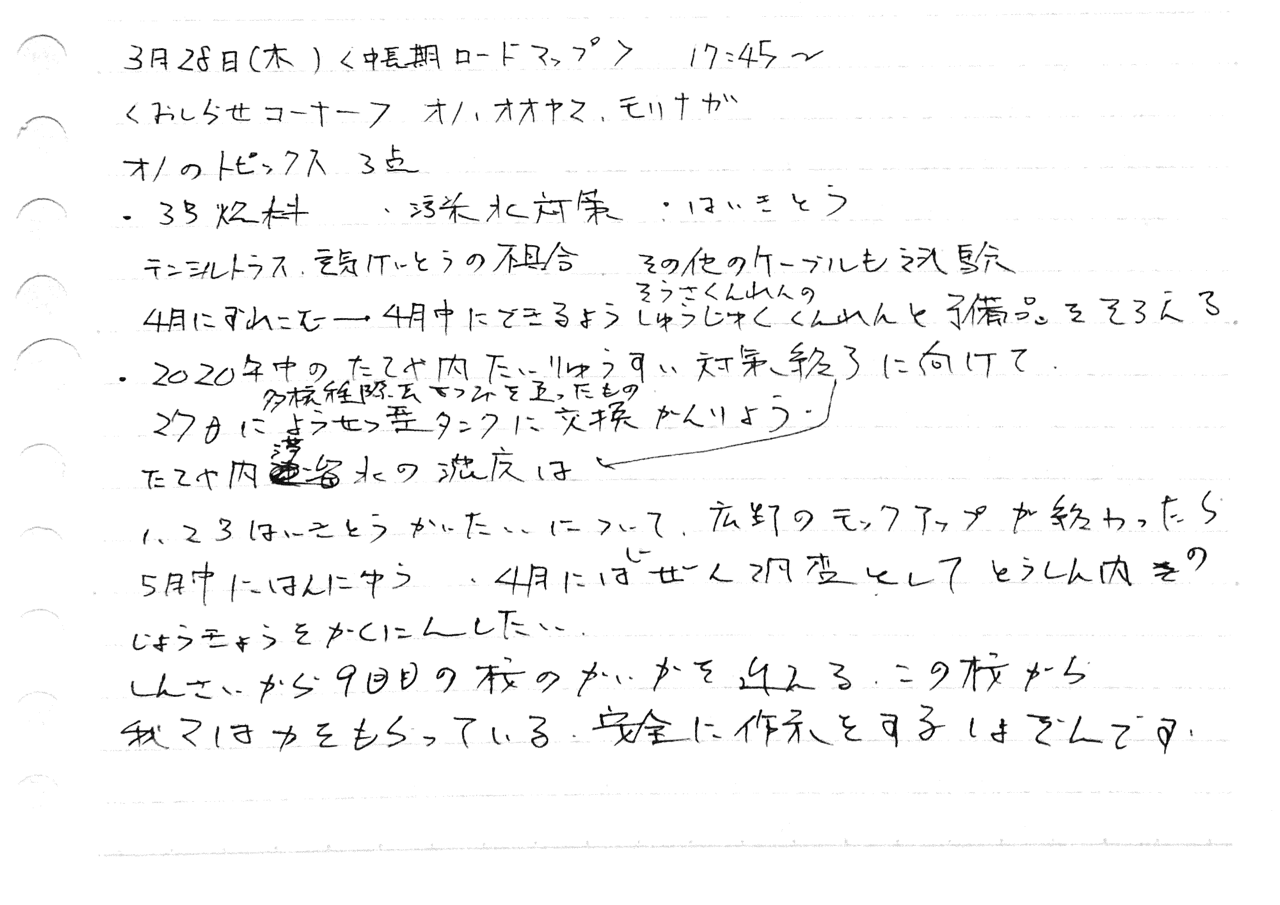 3月28日(木) <中長期ロードマップ> 17:45〜
<おしらせコーナー> オノ、オオヤマ、モリナガ
オノのトピックス 3点
・3号燃料 ・汚染水対策 ・はいきとう
テンシルトラス、電気けいとうの不具合 その他のケーブルも試験
そうさくんれんの
4月にずれこむ→4月中にできるようしゅうじゅくくんれんと予備品をそろえる
・2020年中のたてや内たいりゅうすい対策終了に向けて.
多核種除去せつびを通ったもの
27日にようせつ型タンクに交換かんりょう.
たてや内滞留水の濃度は
1、2 3はいきとうかいたいについて、広野のモックアップが終わったら
5月中にはんにゅう ・4月にはじぜん調査としてとうしん内の
じょうきょうをかくにんしたい.
しんさいから9回目の桜のかいかを迎える.この桜から
我々は力をもらっている.安全に作業をするしょぞんです.